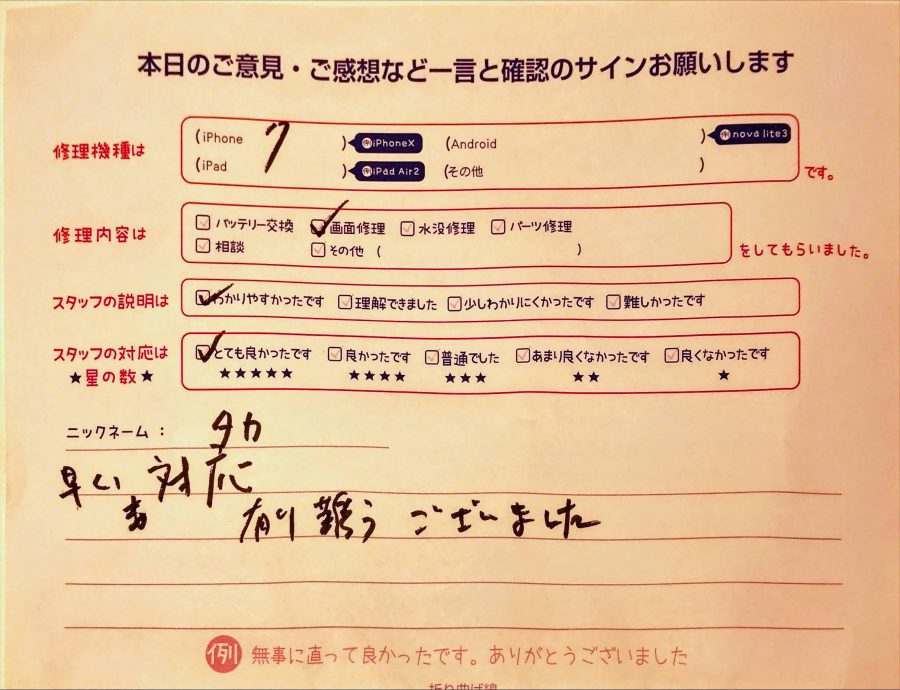 本日のご意見・ご感想など一言と確認のサインお願いします
修理機種は (iPhone 7 ) 例iPhoneX (Android ) 例nova lite3
(iPad ) 例iPad Air2 (その他 ) です。
修理内容は バッテリー交換 画面修理 水没修理 パーツ修理
相談 その他 ( ) をしてもらいました。
スタッフの説明は わかりやすかったです 理解できました 少しわかりにくかったです 難しかったです
スタッフの対応は とても良かったです 良かったです 普通でした あまり良くなかったです 良くなかったです
★星の数★ ★★★★★ ★★★★ ★★★ ★★ ★
ニックネーム： タカ
早い 対応
有り難う ございました
例 無事に直って良かったです。ありがとうございました
折り曲げ線